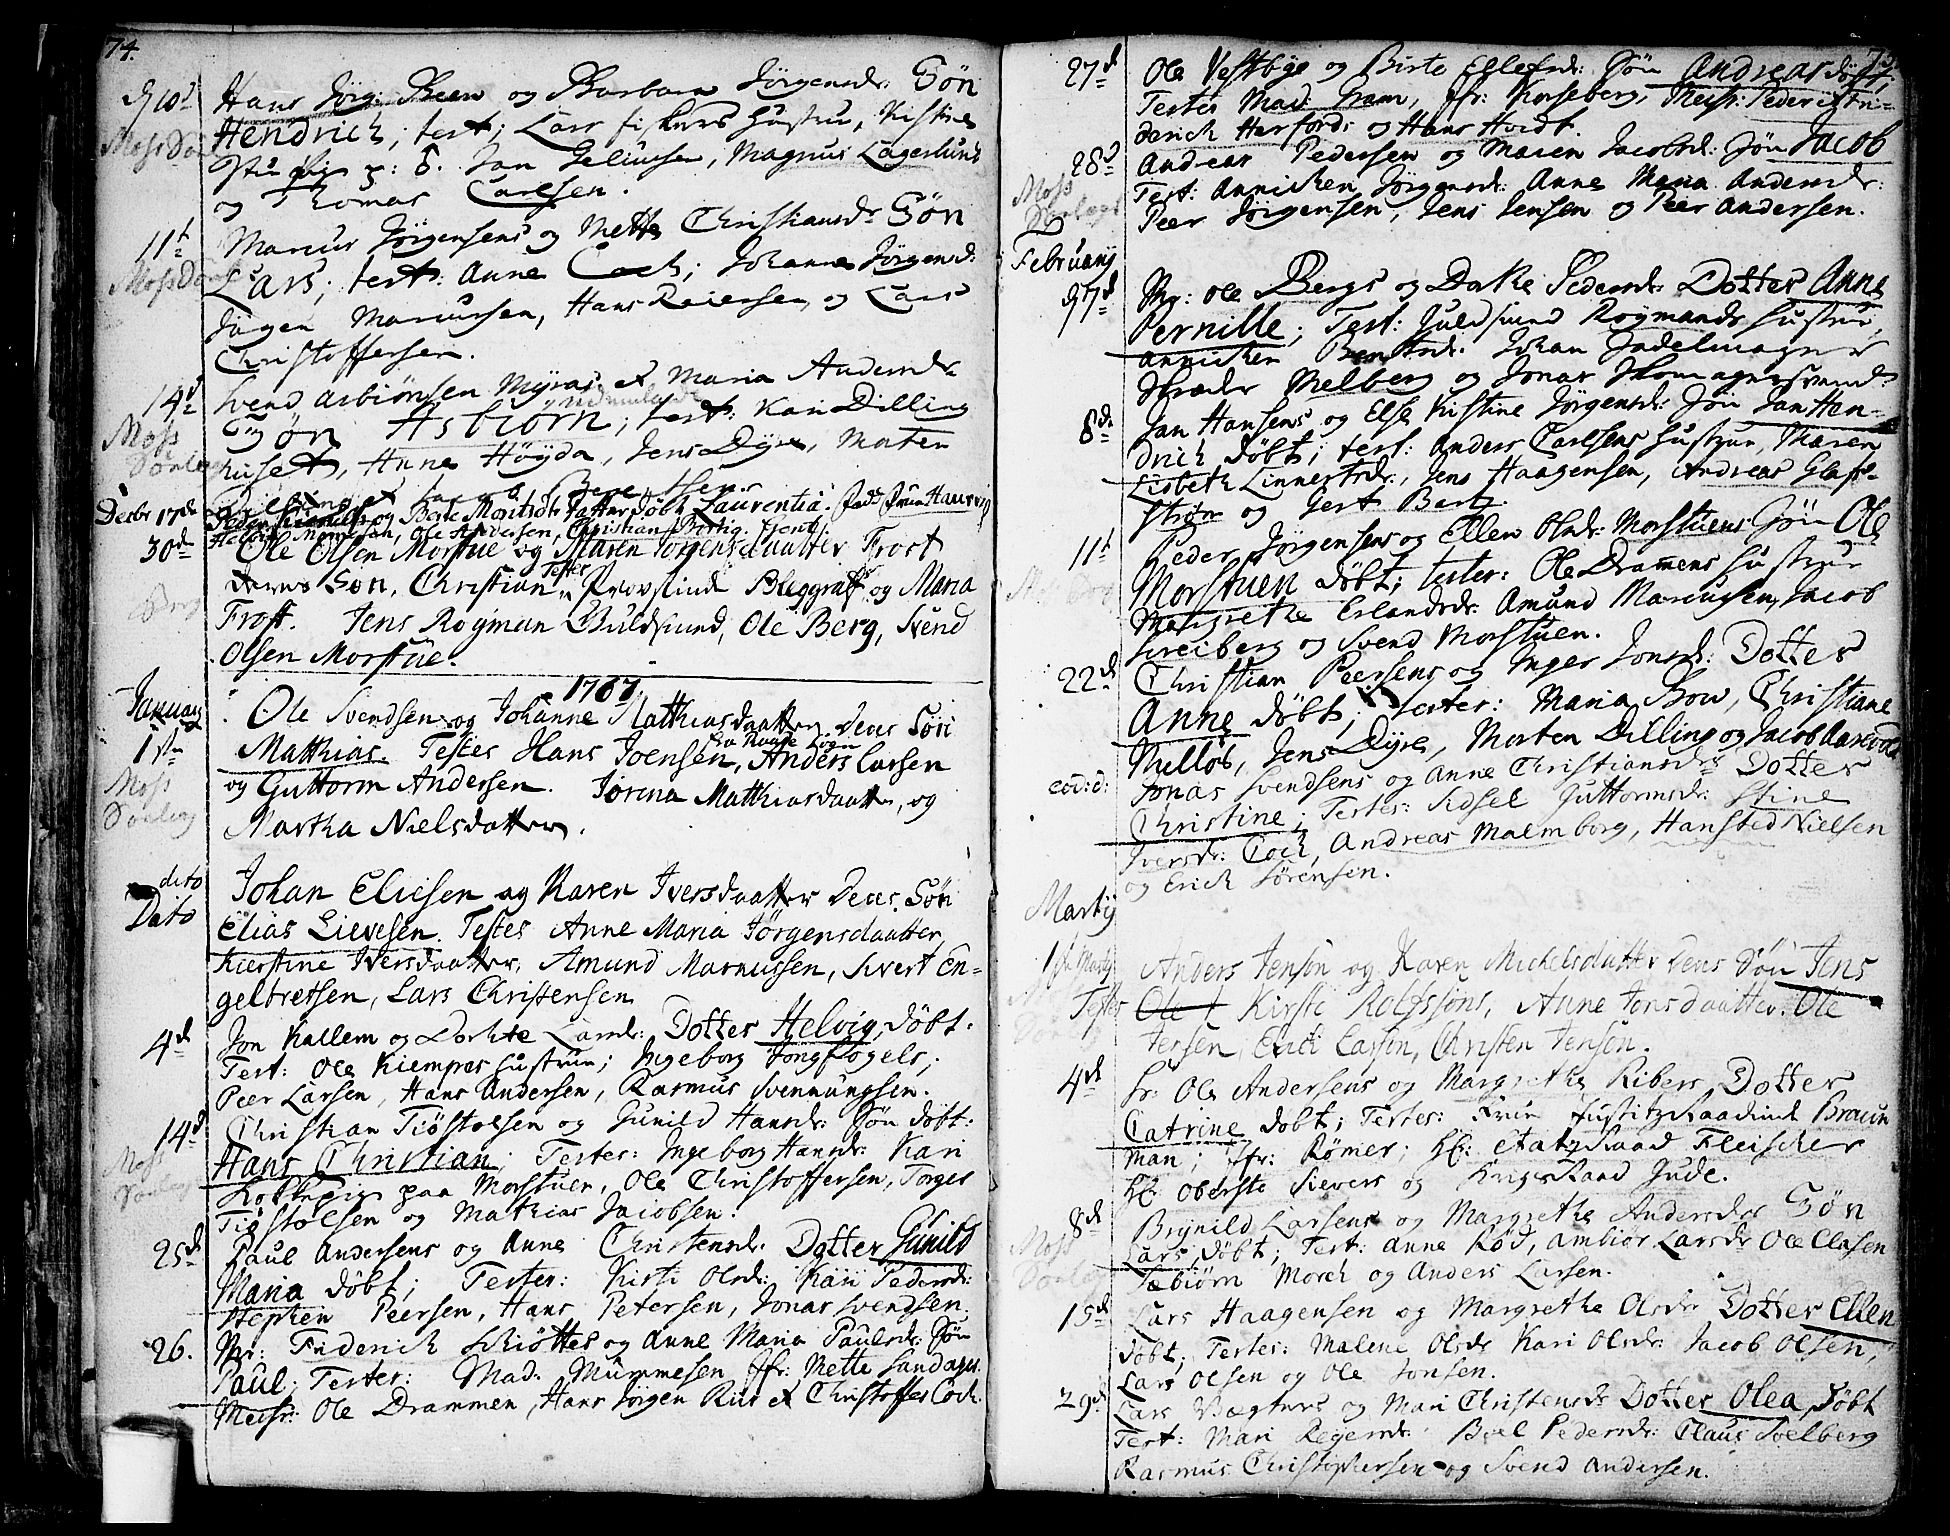 74.
Hans Jørg: Been og Barbara Jørgensdr. Søn
Hendrich; test; Lars fiskers Hustru, Kistine
p: t. Jan Geliusen, Magnus Lagerlund
og Thomas Carlsen.
11t
Marcus Jørgensens og Mette Christiansdr Søn
Lars; test: Anne Coch; Johanne Jørgensd:
Jørgen Marcussen, Hans Reiersen og Lars
Christoffersen.
14d
Moss
Svend Asbiørnsen Myras et Maria Andersdr
Søn Asbiørn; test: Kari Dilling
Anne Høyda, Jens Dyre, Morten
Decbr 17de
Laurentia
30de
Ole Olsen Morstue og Maren Jørgensdaatter Frost
Deres Søn, Christian Testes Provstinde Bleggraff og Maria
Frost. Jens Rogman Guldsmed, Ole Berg, Svend
Olsen Morstue.
1767
January
1ste
Moss
Ole Svendsen og Johanne Matthiasdaatter Deres Søn
Matthias. Testes Hans Joensen, Anders Larsen
og Guttorm Andersen. Jorena Matthiasdaatter, og
Martha Nielsdatter.
dito
Dato
Johan Eliesen og Karen Iversdaatter Deres Søn
Elias Lievesen. Testes Anne Maria Jørgensdaatter,
Kierstine Iversdaatter, Amund Marcussen, Sivert En-
gelbretsen, Lars Christensen
4d
Jon Kallem og Dorthe Larsdr: Dotter Helvig, døbt.
Test: Ole Kiempes Hustrue; Ingeborg Jong Fogels;
Peer Larsen, Hans Andersen, Rasmus Svennungsen.
14d
Moss
Christian Tiøstolsen og Gunild Hansdr: Søn døbt:
Hans Christian; Testes: Ingeborg Hansdr: Kari
paa Morstuen, Ole Christoffersen, Torger
Tiøstolsen og Mathias Jacobsen.
25d
Paul Andersens og Anne Christensdr. Dotter Gunild
Maria døbt; Testes: Kirsti Olsdr: Kari Pedersdr:
Stephen Peersen, Hans Petersen, Jonas Svendsen.
26.
Mr: Friderich Schiøttes og Anne Maria Paulsdr: Søn
Paul; Testes: Mad. Mummesen Jfr: Mette Sandager.
Meisr: Ole Drammen, Hans Jørgen Riis et Christoffer Coch.
27d
Ole Vestbye og Birte Ellefsdr: Søn Andreas døbt;
Testes Mad: Gram, Jfr: Korseberg, Meisr: Peder
derich Herfordt og Hans Hvidt.
28d
Moss
Andreas Pedersen og Maren Jacobsdr: Søn Jacob
Test: Annichen Jørgensdr: Anne Maria Andersdr:
Peer Jørgensen, Jens Jensen og Peer Andersen.
February
Mr: Ole Bergs og Dorthe Pedersdr: Dotter Anne
Pernille; Test: Guldsmed Rogmands Hustrue,
Annichen Berntsdr. Johan Sadelmager
Skræder Melberg og Jonas Skomagersvend.
8de
Jan Hansens og Else Kistine Jørgensdr: Søn Jan Hen-
drich døbt; test: Anders Carlsens Hustrue, Maren
Lisbeth Linnertsdr:, Jens Haagensen, Andreas Glas-
strøm og Gert Bertz.
11t
Peder Jørgensens og Ellen Olsdr: Morstuens Søn Ole
Morstuen døbt; testes: Ole Dramens Hustrue
Margrethe Erlandsdr. Amund Marcussen, Jacob
Screiberg og Svend Morstuen.
22d
Christian Peersens og Inger Jonsdr: Dotter
Anne døbt; testes: Maria Bow, Christiane
Mulløs, Jens Dyre, Morten Dilling og Jacob
eod: d:
Jonas Svendsens og Anne Christiansdr Dotter
Christine; Testes: Sidsel Guttormsdr: Stine
Iversdr: Coch, Andreas Malmborg, Hansted Nielsen
og Erich Sørensen.
Martij
Anders Jensøn og Karen Michelsdatter deres Søn Jens
Testes Kirste Rolfssøns, Anne Jonsdaatter. Ole
Jensen, Erich Larsøn, Christen Jensøn.
4d
Hr. Ole Andersens og Margrethe Ribers Dotter
Catrine døbt; Testes: Frue Justitzraadinde Braun
man; Jfr: Rømer; Hr: Etatzraad Fleischer
Hr: Oberste Sievers og Krigsraad Jude.
8d
Moss
Brynild Larsens og Margrethe Andersdr Søn
Lars døbt; Test: Anne Rød, Ambior Larsdr Ole Clasen
Sæbiørn Morch og Anders Larsen.
15d
Lars Haagensen og Margrethe Olsdr Dotter Ellen
døbt; Testes: Malene Olsdr Kari Olsdr: Jacob Olsen,
Lars Olsen og Ole Jonsen.
29d
Lars Vægters og Mari Christensdr Dotter Olea, døbt
Test: Mari Reyersdr: Boel Pedersdr: Claus Soelberg
Rasmus Christophersen og Svend Andersen.